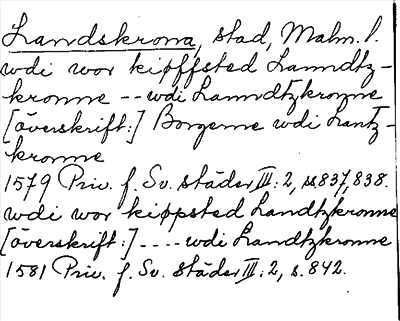 Landskrona, stad, Malm. l.
wdi wor kiøffsted Lanndtz-
kronne -- wdi Lanndtzkronne
[överskrift:] Borgerne wdi Lantz-
kronne
1579 Priv. f. Sv. städer III: 2, ss 837, 838.
wdi wor kiøpsted Landtzkronne
[överskrift:] ---- wdi Landtzkronne
1581 Priv. f. Sv. städer III: 2, s. 842.